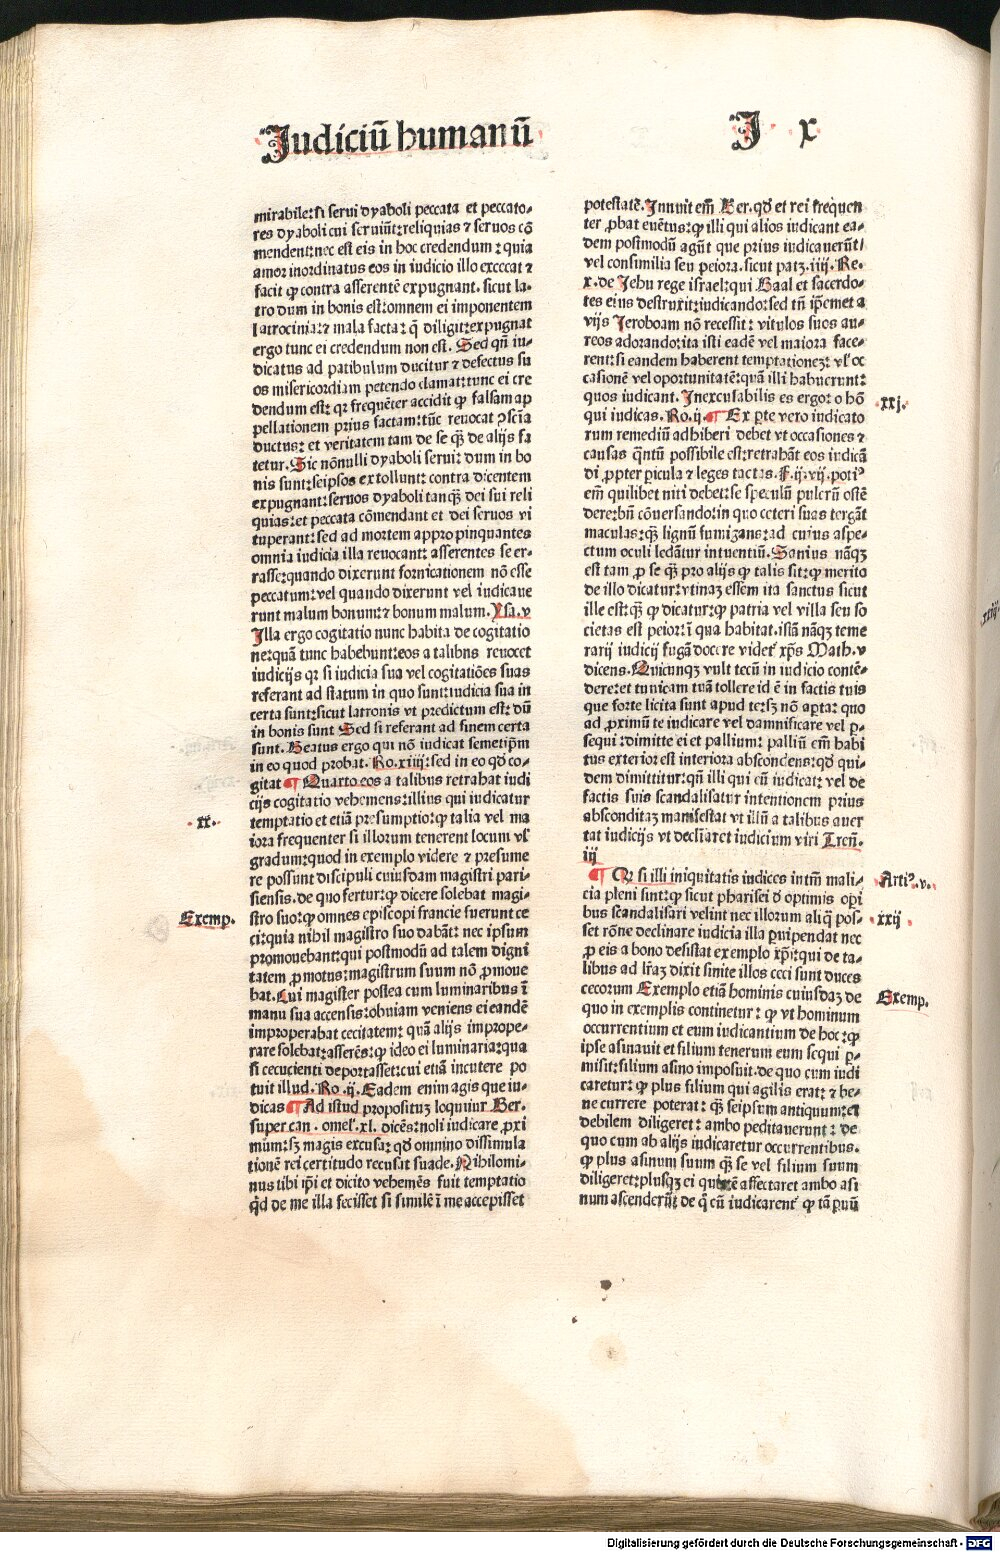 Judiciū humanū
J x
mirabile: si serui dyaboli peccata et peccato-
res dyaboli cui seruiūt: reliquias ⁊ seruos cō
mendent: nec est eis in hoc credendum: quia
amor inordinatus eos in iudicio illo excecat ⁊
facit ꝙ contra asserentē expugnant. sicut la-
tro dum in bonis est: omnem ei imponentem
latrocinia: ⁊ mala facta: q̄ diligit: expugnat
ergo tunc ei credendum non est. Sed qn̄ iu-
dicatus ad patibulum ducitur ⁊ defectus su
os misericordiam petendo clamat: tunc ei cre
dendum est: qꝛ frequēter accidit ꝙ falsam ap
pellationem prius factam: tūc reuocat ꝯsciā
ductus: et veritatem tam de se qꝫ de alijs fa
tetur. Sic nōnulli dyaboli serui: dum in bo
nis sunt: seipsos extollunt: contra dicentem
expugnant: seruos dyaboli tanqꝫ dei sui reli
quias: et peccata cōmendant et dei seruos vi
tuperant: sed ad mortem appropinquantes
omnia iudicia illa reuocant: asserentes se er-
rasse: quando dixerunt fornicationem nō esse
peccatum: vel quando dixerunt vel iudicaue
runt malum bonum: ⁊ bonum malum. Ysa. v
Illa ergo cogitatio nunc habita de cogitatio
ne: quā tunc habebunt: eos a talibus reuocet
iudicijs qꝛ si iudicia sua vel cogitatiōes suas
referant ad statum in quo sunt: iudicia sua in
certa sunt: sicut latronis vt predictum est: dū
in bonis sunt Sed si referant ad finem certa
sunt. Beatus ergo qui nō iudicat semetipm̄
in eo quod probat. Ro. xiiij: sed in eo qd̄ co-
gitat ¶ Quarto eos a talibus retrahat iudi
cijs cogitatio vehemens: illius qui iudicatur
temptatio et etiā presumptio: ꝙ talia vel ma
iora frequenter si illorum tenerent locum vl̓
gradum: quod in exemplo videre ⁊ presume
re possunt discipuli cuiusdam magistri pari-
siensis. de quo fertur: ꝙ dicere solebat magi-
stro suo: ꝙ omnes episcopi francie fuerunt ce
ci: quia nihil magistro suo dabāt: nec ipsum
promouebant: qui postmodū ad talem digni
tatem ꝓmotus: magistrum suum nō ꝓmoue
bat. Cui magister postea cum luminaribus ī
manu sua accensis: obuiam veniens ei eandē
improperabat cecitatem: quā alijs impropе-
rare solebat: asserēs: ꝙ ideo ei luminaria: qua
si cecucienti deportasset: cui etiā incutere po
tuit illud. Ro. ij. Eadem enim agis que iu-
dicas ¶ Ad istud proposituꝫ loquiur Ber.
super can. omel̓. xl. dicēs: noli iudicare ꝓxi
mum: sꝫ magis excusa: qd̄ omnino dissimula
tionē rei certitudo recusat suade. Nihilomi-
nus tibi ip̄i et dicito vehemēs fuit temptatio
qd̄ de me illa fecisset si similē ī me accepisset
potestatē. Innuit em̄ Ber. qd̄ et rei frequen
ter ꝓbat euētus: ꝙ illi qui alios iudicant ea-
dem postmodū agūt que prius iudicauerūt/
vel consimilia seu peiora. sicut patꝫ. iiij. Re-
x. de Jehu rege israel: qui Baal et sacerdo-
tes eius destruxit: iudicando: sed tn̄ ip̄emet a
vijs Jeroboam nō recessit: vitulos suos au-
reos adorando: ita isti eadē vel maiora face-
rent: si eandem haberent temptationeꝫ: vl̓ oc
casionē vel oportunitatē: quā illi habuerunt:
quos iudicant. Inexcusabilis es ergo: o hō
qui iudicas. Ro. ij. ¶ Ex ꝑte vero iudicato
rum remediū adhiberi debet vt occasiones ⁊
causas qn̄tū possibile est: retrahāt eos iudicā
di ꝓpter picula ⁊ leges tactas. F. ij. vij. poti⁹
em̄ quilibet niti debet: se speculū pulcrū ostē
dere: bn̄ cōuersando: in quo ceteri suas tergāt
maculas: qꝫ lignū fumigans: ad cuius aspe-
ctum oculi ledātur intuentiū. Sanius nāqꝫ
est tam ꝓ se qꝫ pro alijs ꝙ talis sit: ꝙ merito
de illo dicatur: vtinaꝫ essem ita sanctus sicut
ille est: qꝫ ꝙ dicatur: ꝙ patria vel villa seu so
cietas est peior: ī qua habitat. istā nāqꝫ teme
rarij iudicij fugā docere videt̓ xp̄s Math. v
dicens. Quicunqꝫ vult tecū in iudicio contē-
dere: et tunicam tuā tollere id ē in factis tuis
que forte licita sunt apud te: sꝫ nō apta: quo
ad ꝓximū te iudicare vel damnificare vel ꝑ-
sequi: dimitte ei et pallium: palliū em̄ habi
tus exterior est interiora abscondens: qd̄ qui-
dem dimittitur: qn̄ illi qui cū iudicat: vel de
factis suis scandalisatur intentionem prius
absconditaꝫ manifestat vt illū a talibus auer
tat iudicijs vt declaret iudicium viri Trcn̄.
iij
¶ Qꝛ si illi iniquitatis iudices intm̄ mali-
cia pleni sint: ꝙ sicut pharisei d̓ optimis oꝑi
bus scandalisari velint nec illorum aliq̄ pos-
set rōne declinare iudicia illa ꝑuipendat nec
ꝓ eis a bono desistat exemplo xp̄i: qui de ta-
libus ad lr̄aꝫ dixit sinite illos ceci sunt duces
cecorum Exemplo etiā hominis cuiusdaꝫ de
quo in exemplis continetur: ꝙ vt hominum
occurrentium et eum iudicantium de hoc: ꝙ
ipse asinauit et filium tenerum eum sequi ꝑ-
misit: filium asino imposuit. de quo cum iudi
caretur: ꝙ plus filium qui agilis erat: ⁊ be-
ne currere poterat: qꝫ seipsum antiquum: et
debilem diligeret: ambo peditauerunt: de
quo cum ab alijs iudicaretur occurrentibus.
ꝙ plus asinum suum qꝫ se vel filium suum
diligeret: plusqꝫ ei quietē affectaret ambo asi
num ascenderūt: de q̄ cū iudicarent̓ ꝙ tā ꝑuū
.xx.
Exemp.
.xxj.
Arti⁹. v.
xxij
Exemp.
Digitalisierung gefördert durch die Deutsche Forschungsgemeinschaft - DFG